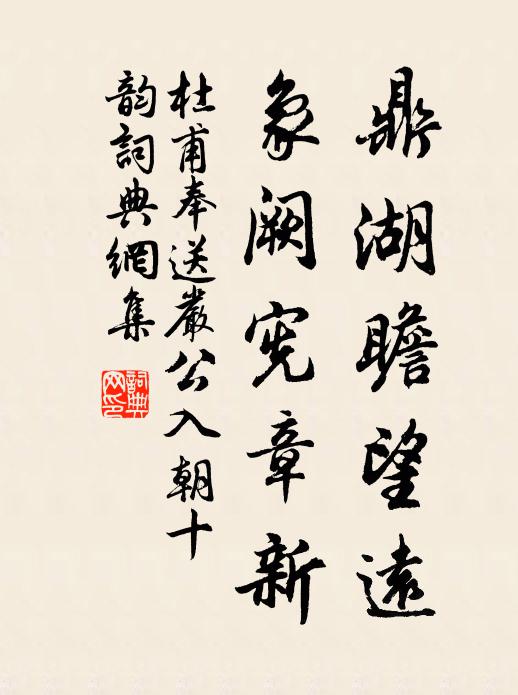 鼎湖瞻望遠
象阙宪章新
杜甫奉送嚴公入朝十
韵詞典網集
詞典
网印